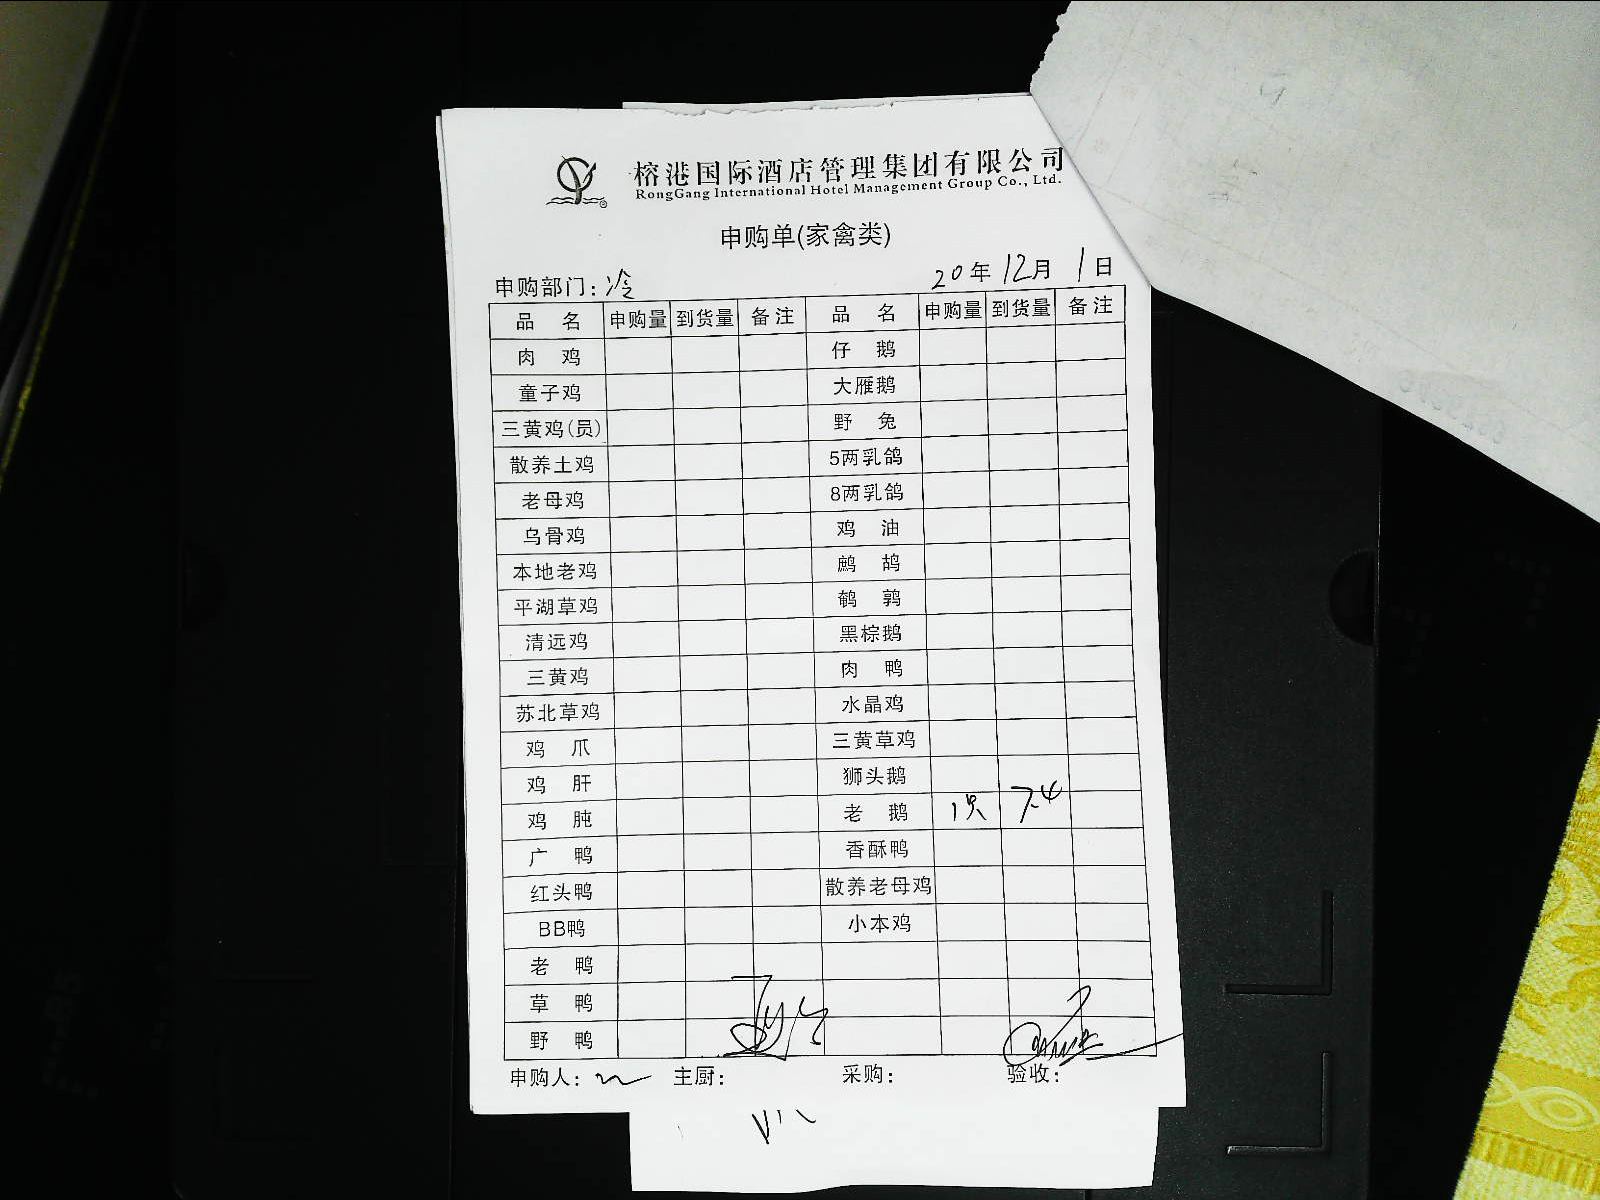 榕港国际酒店管理集团有限公司
RongGang International Hotel Management Group Co., Ltd.
申购单(家禽类)
申购部门:冷 20年 12月 1日
品 名 申购量 到货量 备注 品 名 申购量 到货量 备注
肉 鸡 仔 鹅
童子鸡 大雁鹅
三黄鸡(员) 野 兔
散养土鸡 5两乳鸽
老母鸡 8两乳鸽
乌骨鸡 鸡 油
本地老鸡 鹧 鸪
平湖草鸡 鹌 鹑
清远鸡 黑棕鹅
三黄鸡 肉 鸭
苏北草鸡 水晶鸡
鸡 爪 三黄草鸡
鸡 肝 狮头鹅
鸡 肫 老 鹅 1只 7.4
广 鸭 香酥鸭
红头鸭 散养老母鸡
BB鸭 小本鸡
老 鸭
草 鸭
野 鸭
申购人: 主厨: 采购: 验收: